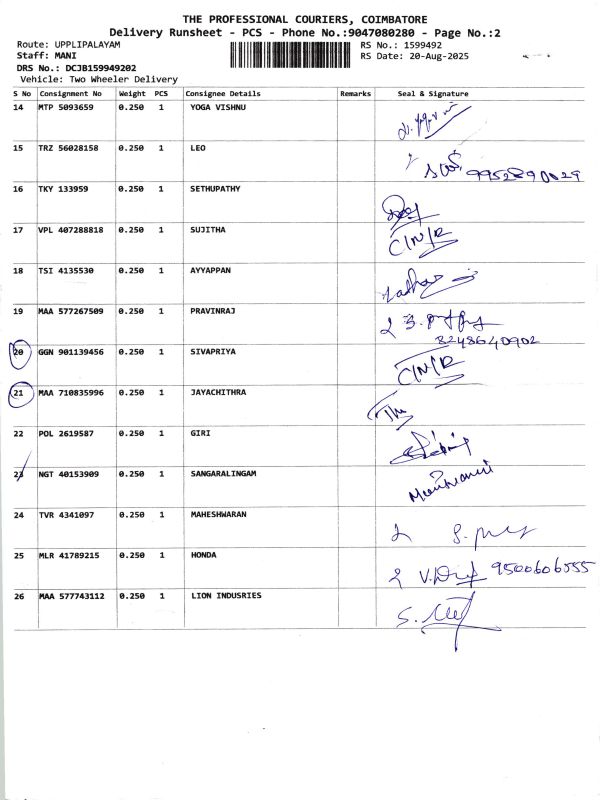 THE PROFESSIONAL COURIERS, COIMBATORE
Delivery Runsheet - PCS - Phone No.:9047080280 - Page No.:2
Route: UPPLIPALAYAM RS No.: 1599492
Staff: MANI RS Date: 20-Aug-2025
DRS No.: DCJB159949202
Vehicle: Two Wheeler Delivery
S No Consignment No Weight PCS Consignee Details Remarks Seal & Signature
14 MTP 5093659 0.250 1 YOGA VISHNU
15 TRZ 56028158 0.250 1 LEO 9952890029
16 TKY 133959 0.250 1 SETHUPATHY
17 VPL 407288818 0.250 1 SUJITHA C/N/R
18 TSI 4135530 0.250 1 AYYAPPAN
19 MAA 577267509 0.250 1 PRAVINRAJ 8248640902
20 GGN 901139456 0.250 1 SIVAPRIYA C/N/R
21 MAA 710835996 0.250 1 JAYACHITHRA
22 POL 2619587 0.250 1 GIRI
23 NGT 40153909 0.250 1 SANGARALINGAM
24 TVR 4341097 0.250 1 MAHESHWARAN
25 MLR 41789215 0.250 1 HONDA 9500606555
26 MAA 577743112 0.250 1 LION INDUSRIES